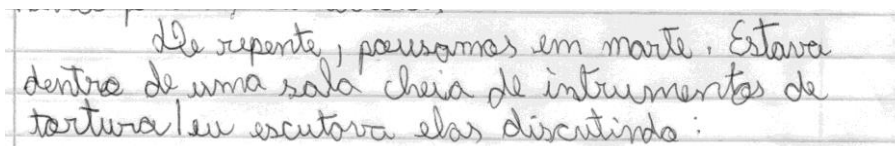 De repente, pousamos em marte. Estava
dentro de uma sala cheia de intrumentos de
tortura/eu escutava elas discutindo: